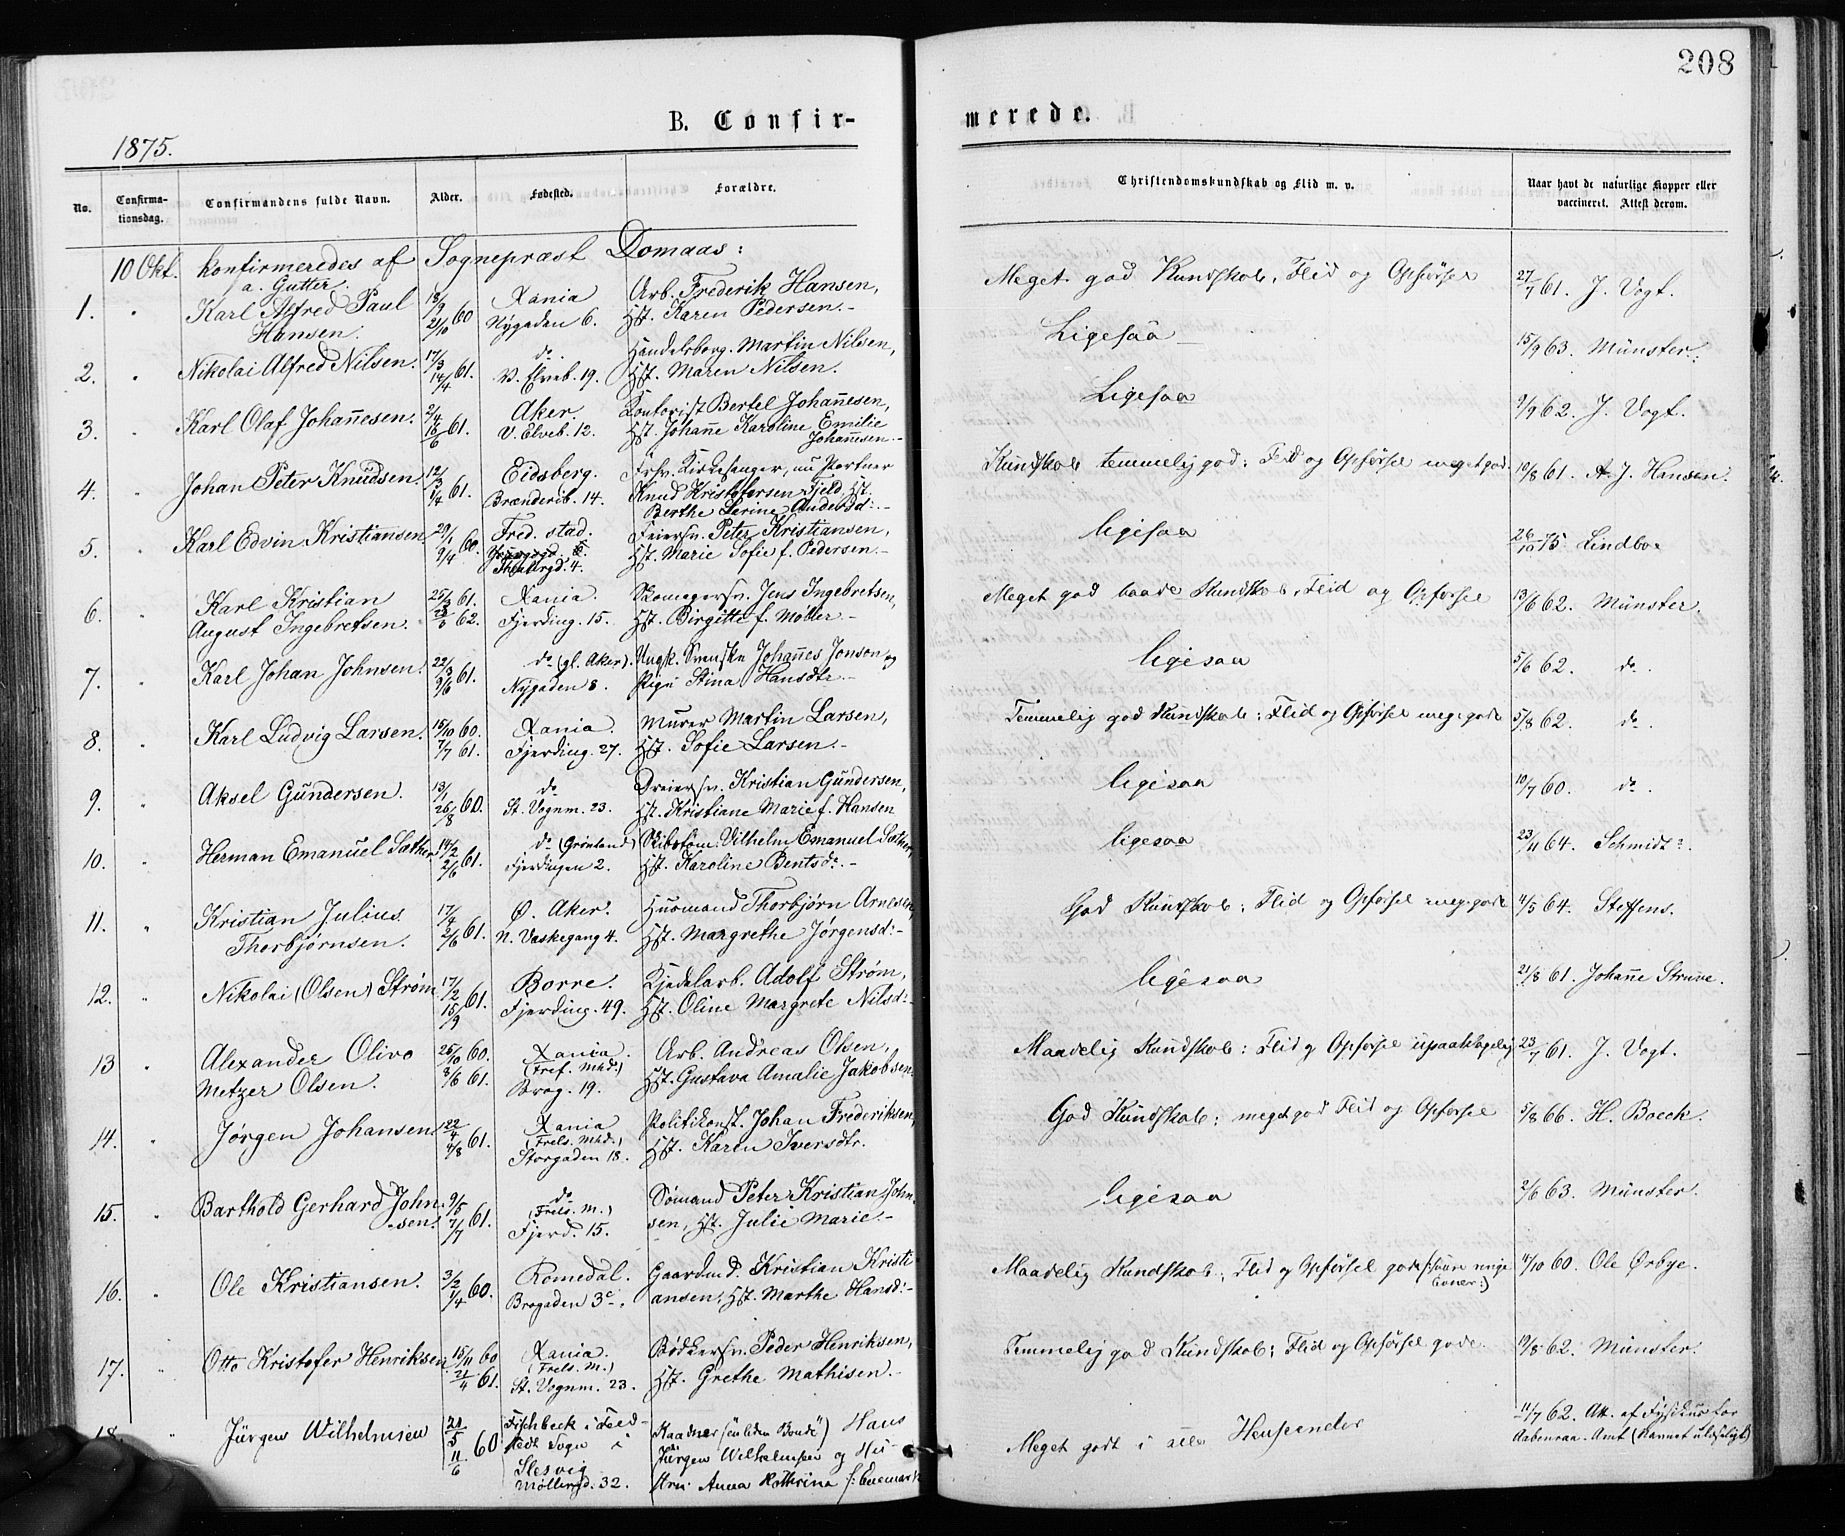 208
B. Confir-
merede.
1875.
No.
Confirma-
tionsdag.
Confirmandens fulde Navn.
Alder.
Fødested.
Forældre.
Christendomskundskab og Flid m. v.
Naar havt de naturlige Kopper eller
vaccineret. Attest derom.
10 Okt. konfirmeredes af Sognepræst Domaas:
a. Gutter.
1. Karl Alfred Paul
Hansen.
18/9 21/10 60
Xania
Nygaden 6.
Arb. Frederik Hansen,
Hst. Karen Pedersen.
Meget god Kundskab, Flid og Opførsel
27/7 61. J. Vogt.
2. Nikolai Alfred Nilsen.
17/3 14/4 61.
do.
V. Elveb. 19.
Handelsborg. Martin Nilsen,
Hst. Maren Nilsen.
Ligesaa
15/9 63. Münster.
3. Karl Olaf Johannesen.
2/4 16/6 61.
Aker.
V. Elveb. 12.
Kontorist Bertel Johannesen,
Hst. Johanne Karoline Emilie
Johannesen.
Ligesaa
9/9 62. J. Vogt.
4. Johan Peter Knudsen.
12/3 1/4 61.
Eidsberg.
Brænderib. 14.
Frhv. Kirkesanger, nu Portner
Knud Kristofersen Fjeld, Hst.
Berthe Serine Andersd:
Kundskab temmelig god; Flid og Opførsel meget god.
10/8 61. A. J. Hansen.
5. Karl Edvin Kristiansen.
29/1 9/4 60.
Fred.stad.
4.
Feiersv. Peter Kristiansen,
Hst. Marie Sofie f. Pedersen
ligesaa
26/10 75 Lindboe
6. Karl Kristian
August Ingebretsen.
61.
62.
Xania.
Fjerding. 15.
Skomagersv. Jens Ingebretsen,
Hst. Birgitte f. Møller
Meget god baade Kundskab, Flid og Opførsel
13/6 62. Münster.
7. Karl Johan Johnsen.
22/3 9/6 61.
do (gl. Aker).
Nygaden 8.
Ungk. Svenske Johannes Jonson og
Pige Stina Hansdtr.
ligesaa
5/6 62. do.
8. Karl Ludvig Larsen.
15/10 60.
7/7 61.
Xania.
Fjerding. 27.
Murer Martin Larsen,
Hst. Sofie Larsen.
Temmelig god Kundskab; Flid og Opførsel meg. gode
5/8 62. do.
9. Aksel Gundersen.
13/1 26/8 60.
do
St. Vognm. 23.
Dreiersv. Kristian Gundersen,
Hst. Kristiane Marie f. Hansen
ligesaa
19/7 60. do.
10. Herman Emanuel Sæther
14/2 2/6 61.
do (Grønland)
Fjerdingen 2.
Skibstøm. Vilhelm Emanuel Sæther,
Hst. Karoline Bentsd:
ligesaa
23/11 64. Schmidt.
11. Kristian Julius
Thorbjørnsen.
17/4 2/6 61.
Ø. Aker.
N. Vaskegang 4.
Husmand Thorbjørn Arnesen,
Hst. Margrethe Jørgensd:
God Kundskab; Flid og Opførsel meg. gode
4/5 64. Steffens.
12. Nikolai (Olsen) Strøm
17/2 15/9 61.
Borre.
Fjerding. 49.
Kjedelarb. Adolf Strøm,
Hst. Oline Margrete Nilsd:
ligesaa
21/8 61. Johanne Struve.
13 Alexander Olivo
Metzer Olsen.
25/10 60.
3/6 61.
Xania.
(Tref. Mhd.)
Brog. 19.
Arb. Andreas Olsen,
Hst. Gustava Amalie Jakobsen
Maadelig Kundskab; Flid og Opførsel upaaklagelig
23/7 61. J. Vogt.
14. Jørgen Johansen
22/4 4/8 61.
Xania
(Frels. Mhd.)
Storgaden 18.
Politikonst. Johan Frederiksen,
Hst. Karen Iversdtr.
God Kundskab; meget god Flid og Opførsel
5/8 66. H. Boeck.
15. Barthold Gerhard John-
sen
9/5 7/7 61.
do
(Frels. M.)
Fjerd. 15.
Sømand Peter Kristian John-
sen, Hst. Julie Marie
ligesaa
2/6 63. Münster.
16. Ole Kristiansen.
3/2 1/4 60.
Romedal.
Brogaden 3c
Gaardmd. Kristian Kristi
ansen, Hst. Marthe Hansd:
Maadelig Kundskab; Flid og Opførsel gode (
Evner:)
4/10 60. Ole Ørbye.
17. Otto Kristofer Henriksen
15/11 60
21/4 61.
Xania.
(Frels. M.)
St. Vognm. 23.
Bødkersv. Peder Henriksen,
Hst. Grethe Mathisen.
Temmelig god Kundskab; Flid og Opførsel gode.
19/8 62. Münster.
18. Jürgen Wilhelmsen
24/5 11/6 60
Fischbeck i Feld-
stedt Sogn i
Slesvig
Møllergd. 32.
Kaadner (en liden Bonde) Hans
Jürgen Wilhelmsen og Hu-
stru Anna Kathrina f: Enemark
Meget godt i alle Henseender
11/7 62. Att. af Fysikus for
Aabenraa-Amt (Navnet ulæseligt)